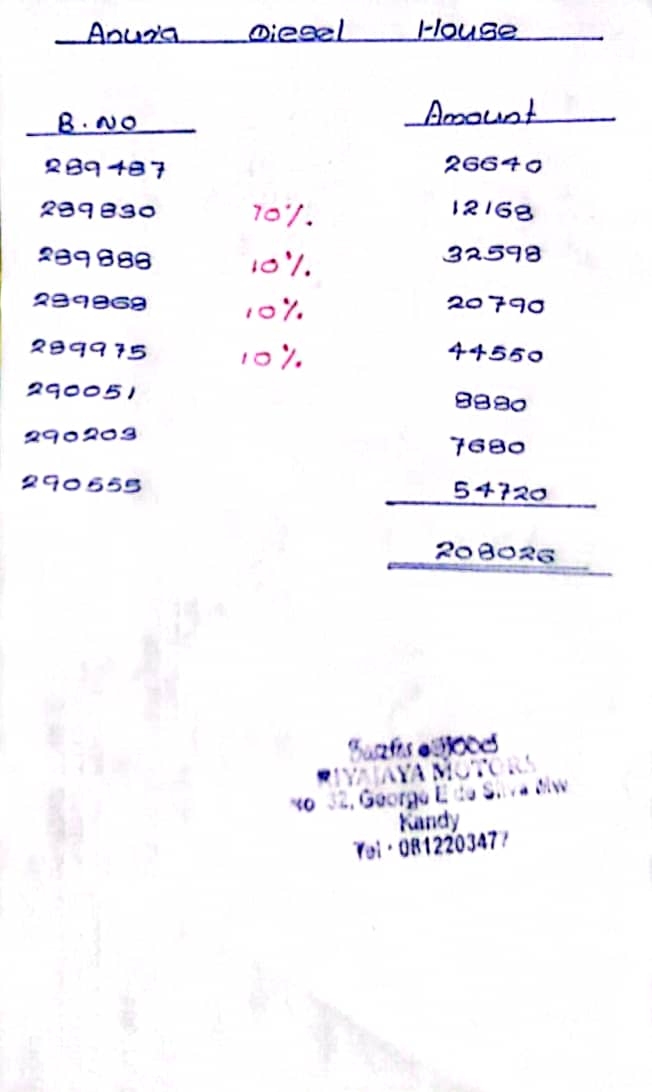 Anura Diesel House
B.NO Amount
289487 26640
289830 10% 12168
289888 10% 32598
289868 10% 20790
289975 10% 44550
290051 8880
290203 7680
290555 54720
208026
RIYAJAYA MOTORS
No 32, George E de Silva Mw
Kandy
Tel : 0812203477